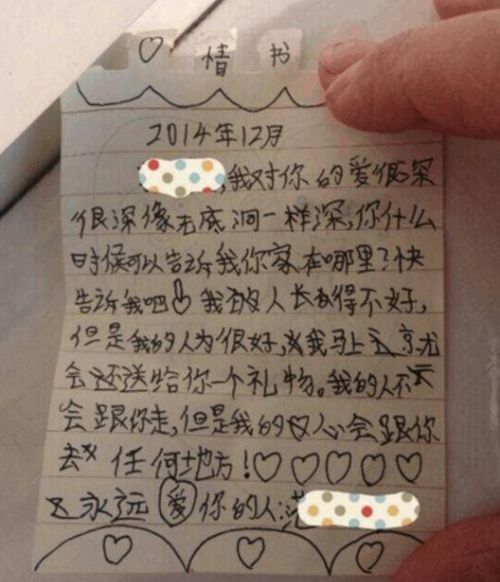 ♡ 情书
2014年12月
,我对你的爱很深
很深像无底洞一样深,你什么
时候可以告诉我你家在哪里?快
告诉我吧 我 人长的得不好,
但是我的人为很好,我马上 京尤
会还送给你一个礼物。我的人不
会跟你走,但是我的心会跟你
去 任何地方!♡♡♡♡♡
永远爱你的人: